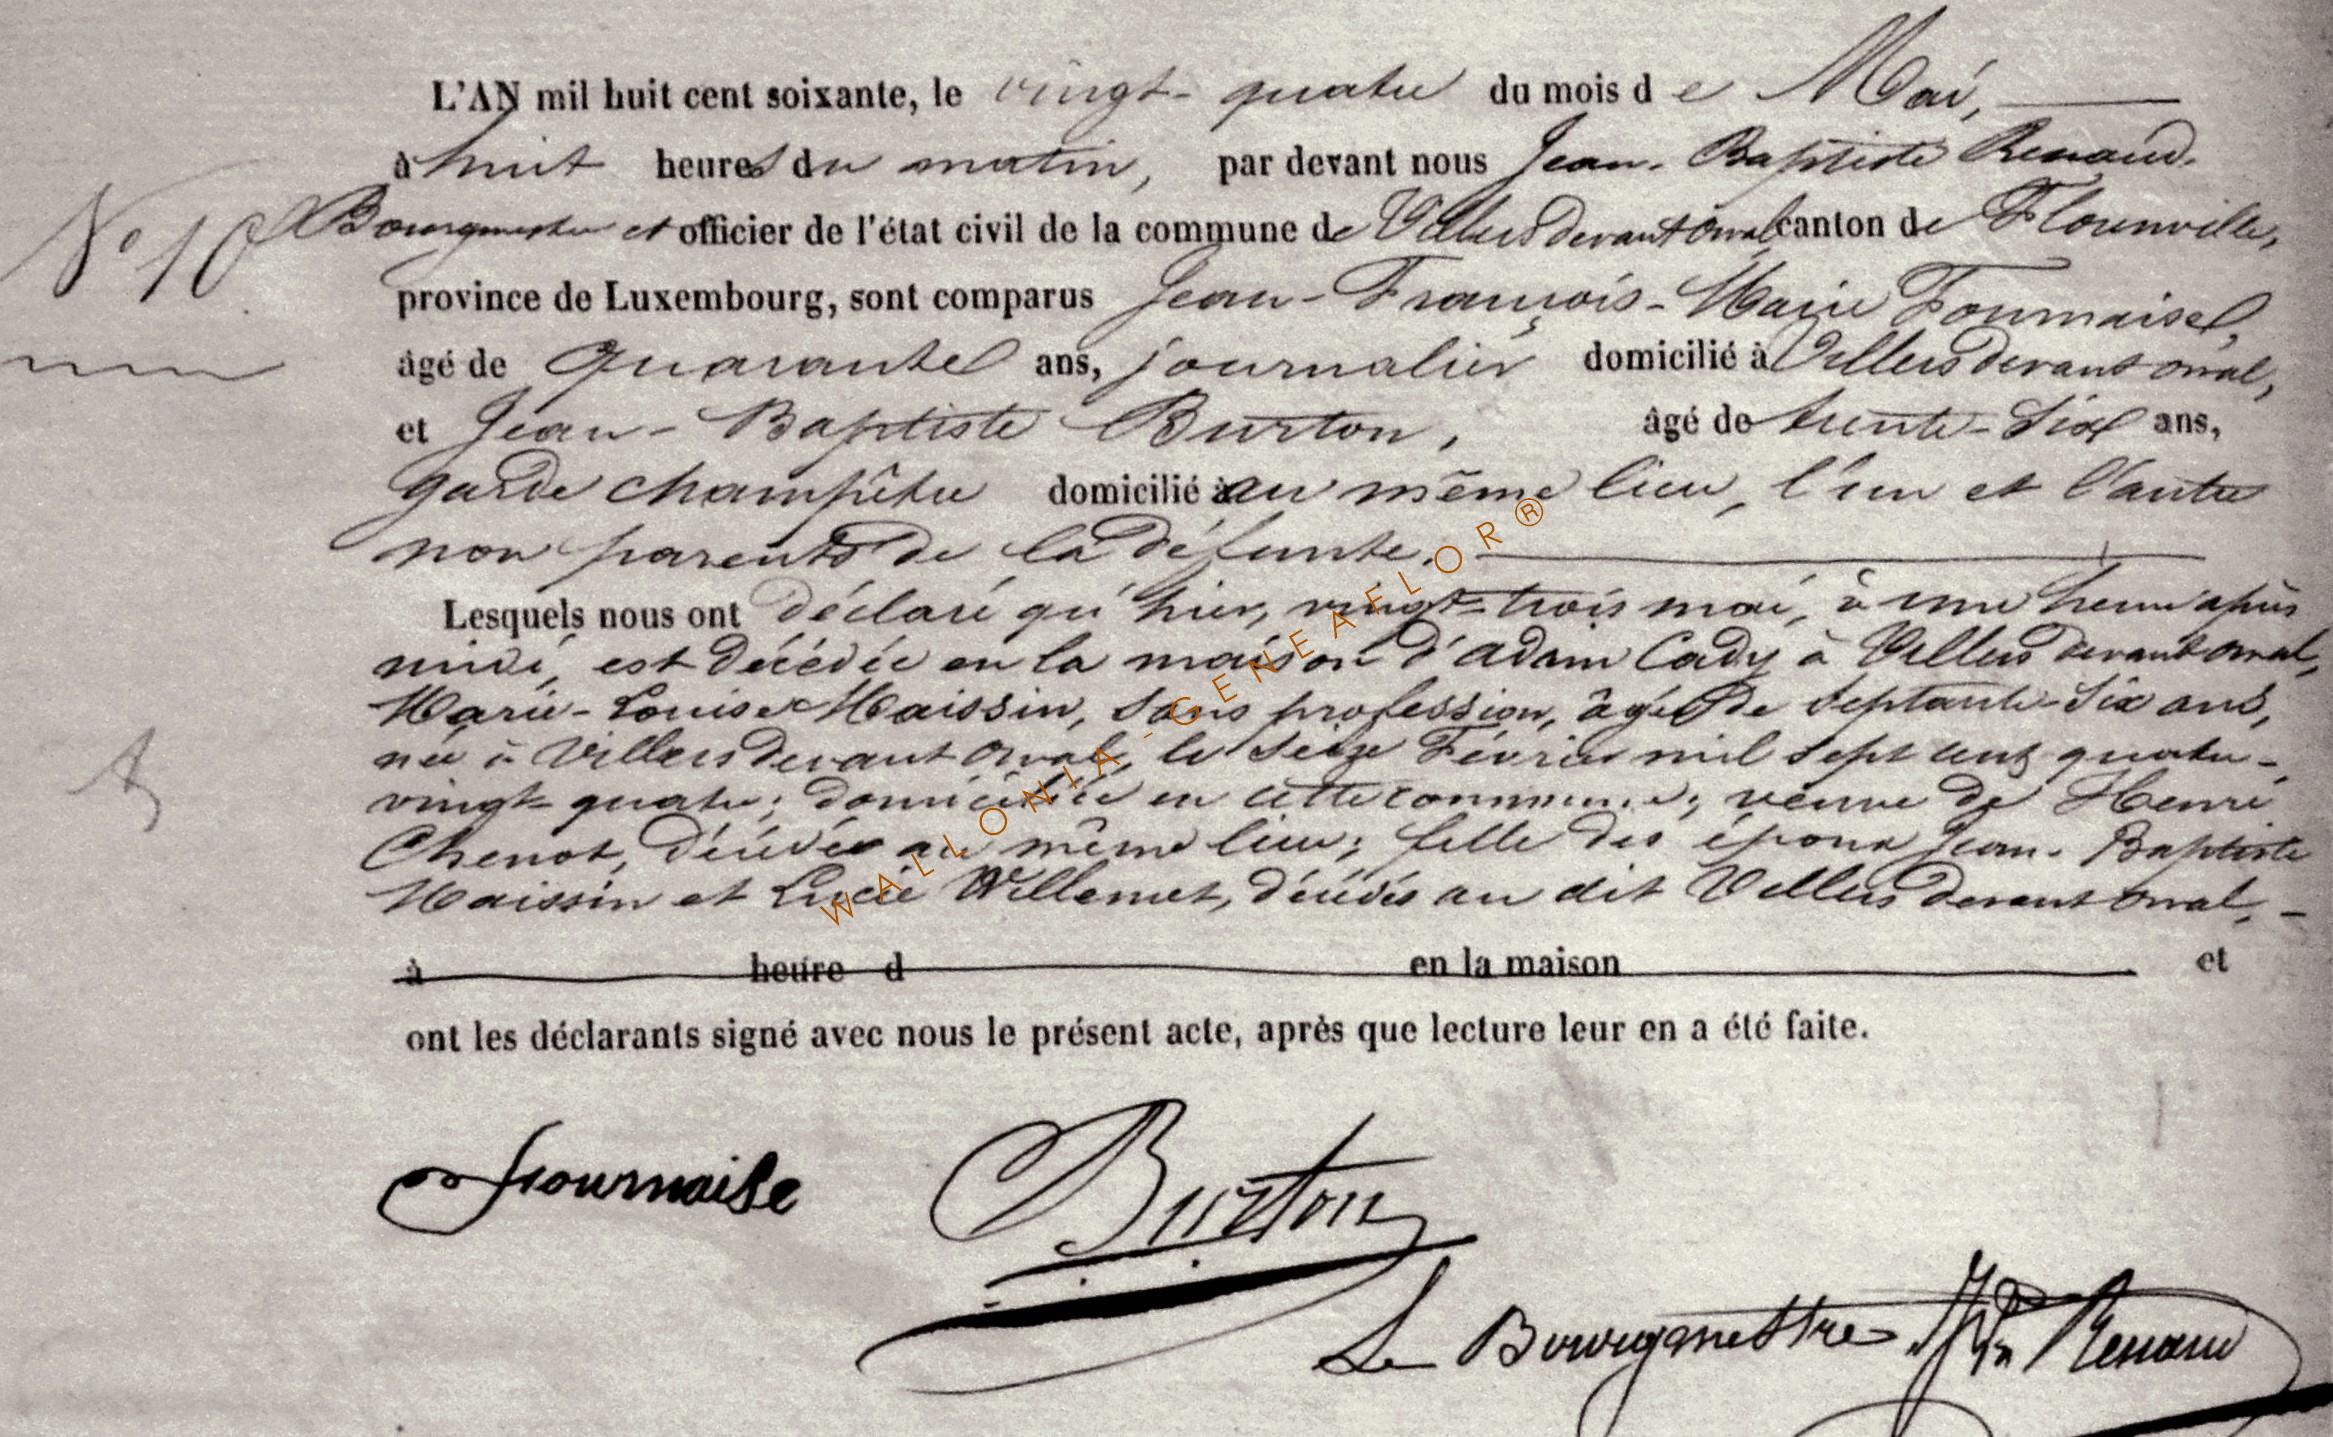 L'AN mil huit cent soixante, le vingt-quatre du mois de Mai,
à huit heures du matin, par devant nous Jean-Baptiste Renaud.
N° 10
Bourgmestre et officier de l'état civil de la commune de Villers devant Orval canton de Florenville,
province de Luxembourg, sont comparus Jean-François-Marie Fournaise,
âgé de quarante ans, journalier domicilié à Villers devant orval,
et Jean-Baptiste Burton, âgé de trente-six ans,
garde champêtre domicilié à au même lieu, l'un et l'autre
non parents de la défunte.
Lesquels nous ont déclaré qu'hier, vingt-trois mai, à une heure après
midi, est décédée en la maison d'adam Cady à Villers devant orval,
Marie-Louise Maissin, sans profession, âgée de septante-six ans,
née à Villers devant Orval, le seize Février mil sept cent quatre-
vingt quatre; domiciliée en cette commune; veuve de Henri
Chenot, décédé au même lieu; fille des époux Jean-Baptiste
Maissin et Lucie Willemet, décédés au dit Villers devant Orval,
à heure d en la maison et
ont les déclarants signé avec nous le présent acte, après que lecture leur en a été faite.
fournaise
Burton
Le Bourgmettre Renaud
WALLONIA-GENEAFLOR®